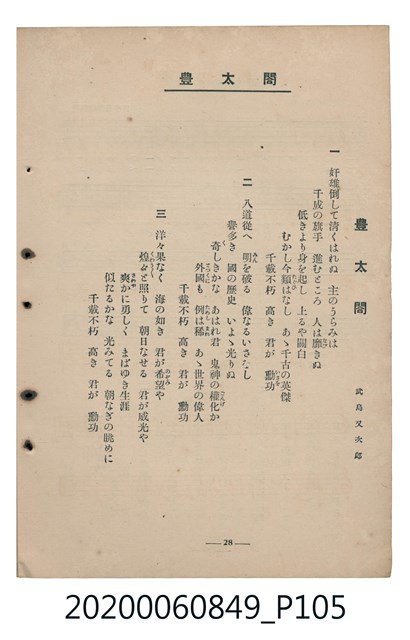 豊太閤
豊太閤
武島又次郎
一 奸雄倒して清くはれぬ 主のうらみは
千成の旗手 進むところ 人は靡きぬ
低きより身を起し 上るや關白
むかし今類はなし あゝ千古の英傑
千載不朽 高き 君が 勳功
二 八道從へ 明を破る 偉なるいさをし
譽多き 國の歴史 いよゝ光りぬ
奇しきかな あはれ君 鬼神の權化か
外國も 例は稀 あゝ世界の偉人
千載不朽 高き 君が 勳功
三 洋々果なく 海の如き 君が希望や
煌々と照りて 朝日なせる 君が威光や
爽かに勇しく まばゆき生涯
似たるかな 光みてる 朝なぎの眺めに
千載不朽 高き 君が 勳功
—28—
20200060849_P105